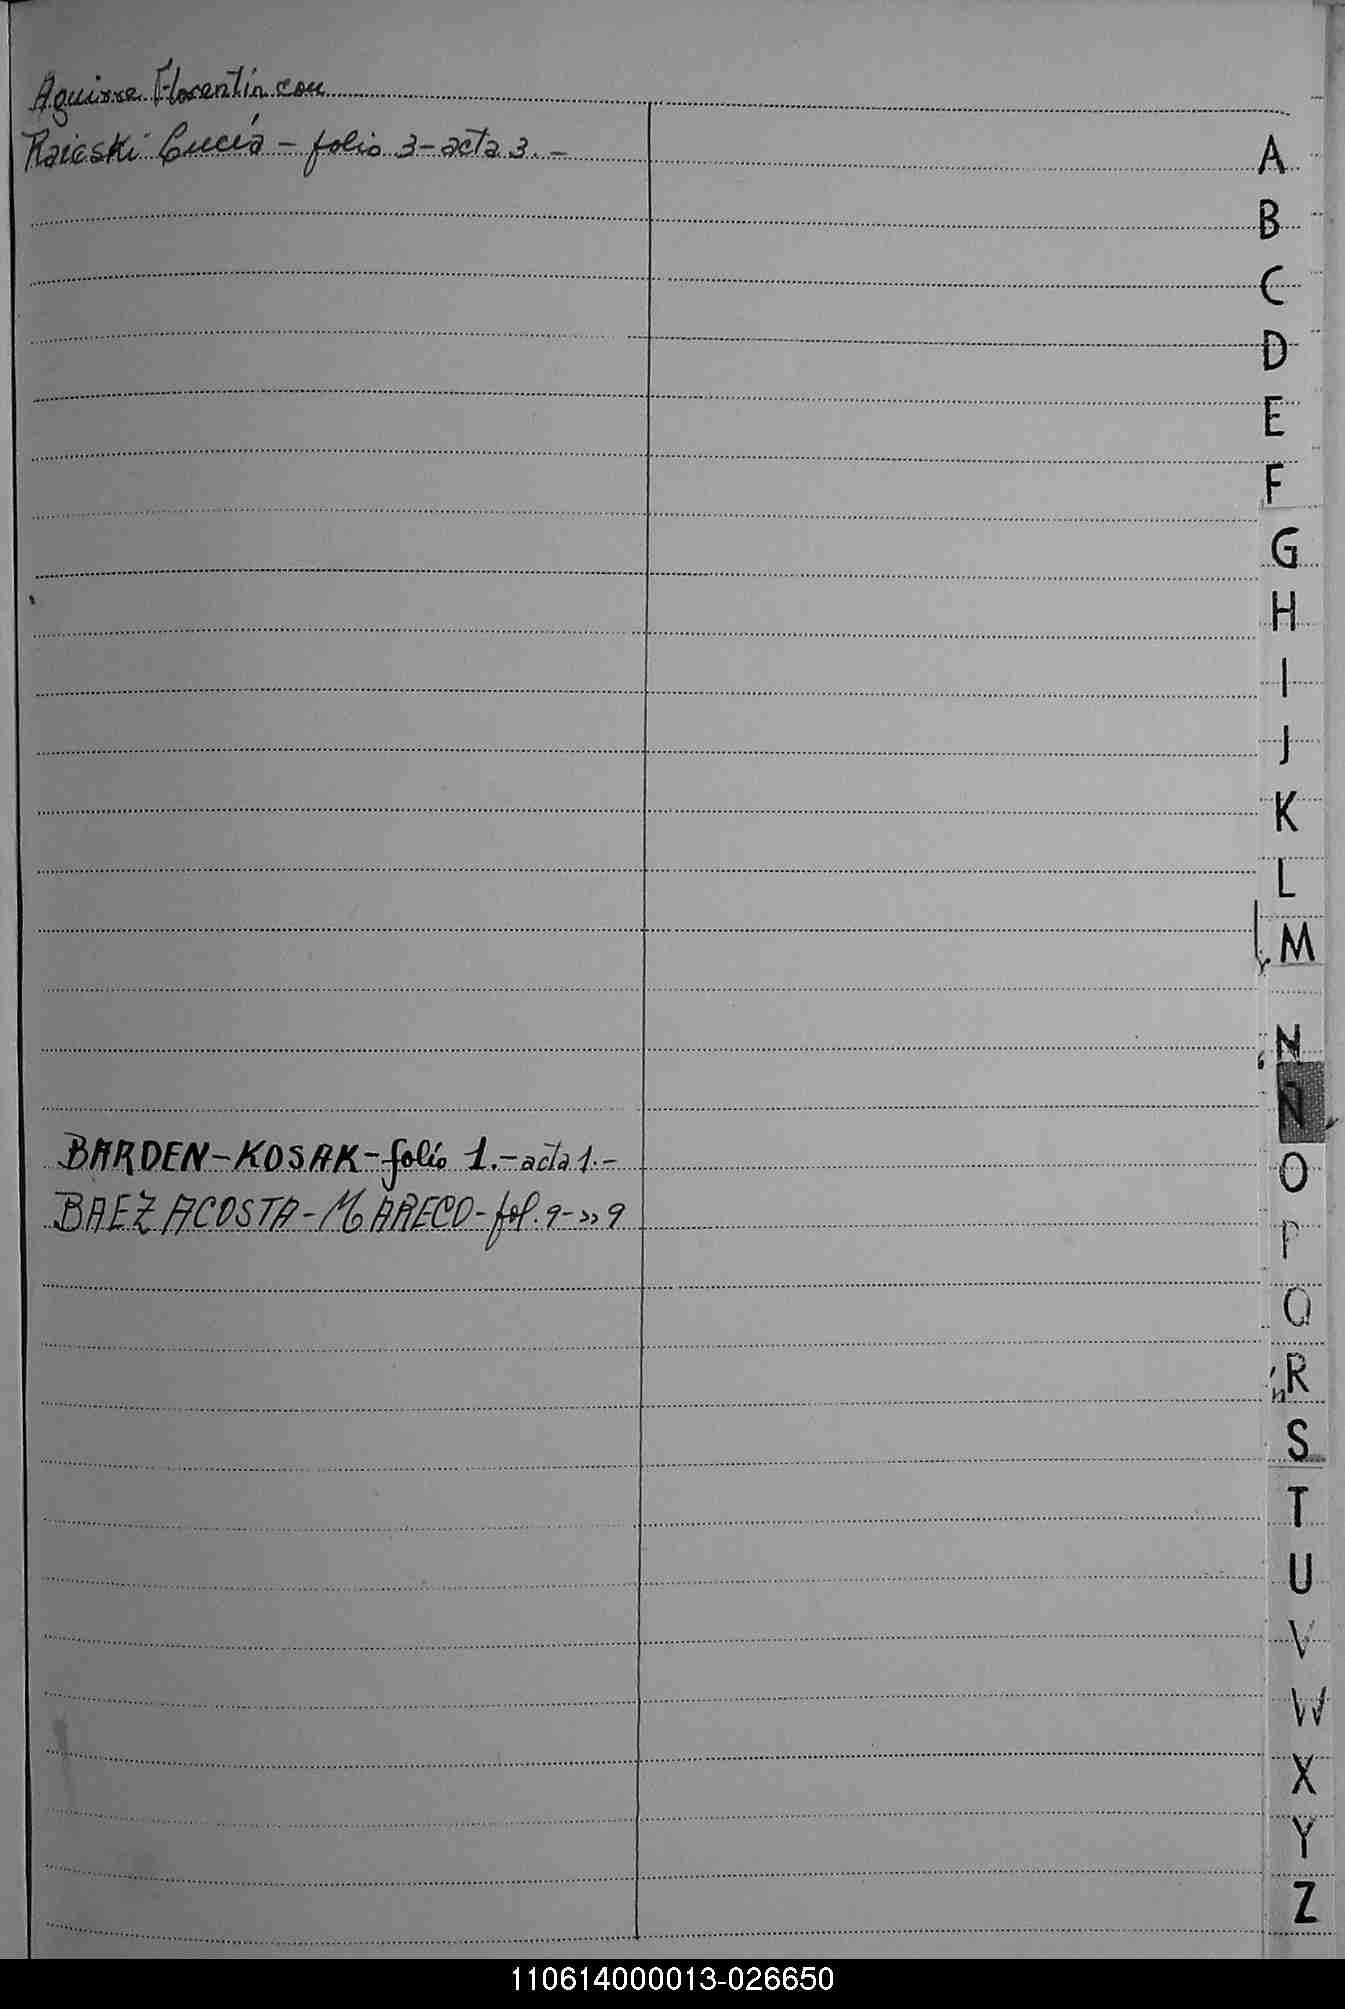 Aguirre Florentín con
Raieski Lucía - folio 3 - acta 3. -
A
B
C
D
E
F
G
H
I
J
K
L
M
N
Ñ
BARDEN-KOSAK-folio 1.- acta 1.-
O
BAEZ ACOSTA - MARECO - fol. 9 - » 9
P
Q
R
S
T
U
V
W
X
Y
Z
110614000013-026650